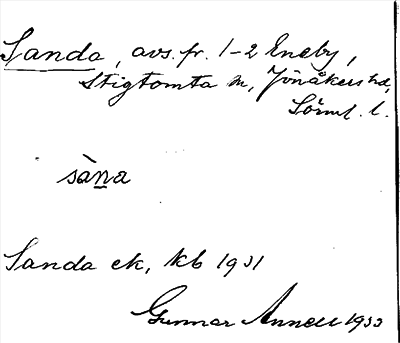 Sanda, avs. fr. 1-2 Eneby,
Stigtomta sn, Jönåkers hd,
Sörml. l.
sàna
Sanda ek, kb 1931
Gunnar Annell 1933